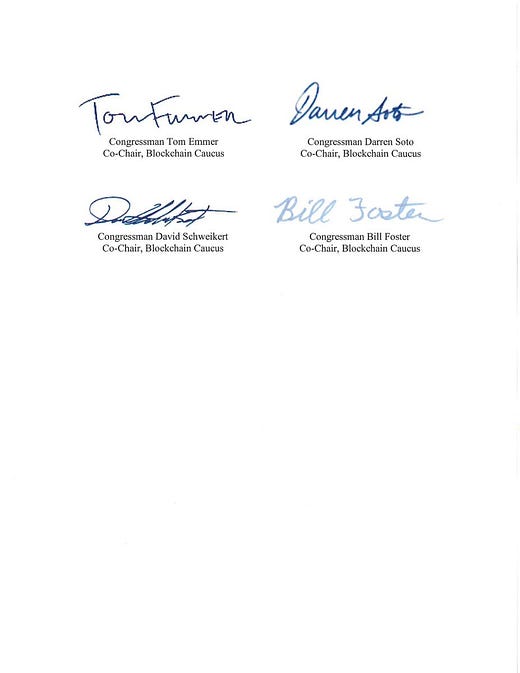 Tom Emmer
Darren Soto
Congressman Tom Emmer
Co-Chair, Blockchain Caucus
Congressman Darren Soto
Co-Chair, Blockchain Caucus
Bill Foster
Congressman David Schweikert
Co-Chair, Blockchain Caucus
Congressman Bill Foster
Co-Chair, Blockchain Caucus